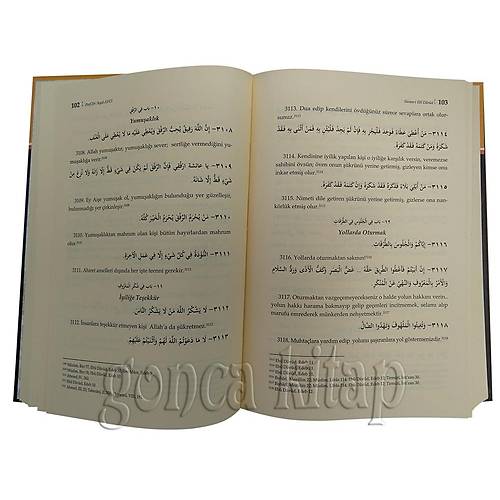 102
١٠- باب في الرِّفْقِ
Yumuşaklık
٣١٠٨- إِنَّ اللَّهَ رَفِيقٌ يُحِبُّ الرِّفْقَ وَيُعْطِي عَلَيْهِ مَا لَا يُعْطِي عَلَى الْعُنْفِ.
3108. Allah yumuşaktır, yumuşaklığı sever; sertliğe vermediğini yumuşaklığa verir.
٣١٠٩- يَا عَائِشَةُ ارْفُقِي فَإِنَّ الرِّفْقَ لَمْ يَكُنْ فِي شَيْءٍ قَطُّ إِلَّا زَانَهُ وَلَا نُزِعَ مِنْ
شَيْءٍ قَطُّ إِلَّا شَانَهُ.
3109. Ey Aişe yumuşak ol, yumuşaklığın bulunduğu yer güzelleşir,
bulunmadığı yer çirkinleşir.
٣١١٠- مَنْ يُحْرَمِ الرِّفْقَ يُحْرَمِ الْخَيْرَ كُلَّهُ.
3110. Yumuşaklıktan mahrum olan kişi bütün hayırlardan mahrum
olur.
٣١١١- التُّؤَدَةُ فِي كُلِّ شَيْءٍ إِلَّا فِي عَمَلِ الْآخِرَةِ.
3111. Ahiret amelleri dışında her işte teenni gerekir.
١١- باب في شُكْرِ الْمَعْرُوفِ
İyiliğe Teşekkür
٣١١٢- لَا يَشْكُرُ اللَّهَ مَنْ لَا يَشْكُرُ النَّاسَ.
3112. İnsanlara teşekkür etmeyen kişi Allah'a da şükretmez.
٣١١٣- لَا مَا دَعَوْتُمُ اللَّهَ لَهُمْ وَأَثْنَيْتُمْ عَلَيْهِمْ.
Sünen-i Ebî Dâvûd | 103
3113. Dua edip kendilerini övdüğünüz sürece sevaplara ortak olursunuz.
٣١١٤- مَنْ أُعْطِيَ عَطَاءً فَوَجَدَ فَلْيَجْزِ بِهِ فَإِنْ لَمْ يَجِدْ فَلْيُثْنِ بِهِ فَمَنْ أَثْنَى بِهِ فَقَدْ
شَكَرَهُ وَمَنْ كَتَمَهُ فَقَدْ كَفَرَهُ.
3114. Kendisine iyilik yapılan kişi o iyiliğe karşılık versin, veremezse
٣١١٥- مَنْ أُبْلِيَ بَلَاءً فَذَكَرَهُ فَقَدْ شَكَرَهُ وَإِنْ كَتَمَهُ فَقَدْ كَفَرَهُ.
3115. Nimeti dile getirm şükrünü yerine getirmiştir, gizleyense ona nankörlük
etmiş olur.
١٢- باب في الْجُلُوسِ فِي الطُّرُقَاتِ
Yollarda Oturmak
٣١١٦- إِيَّاكُمْ وَالْجُلُوسَ بِالطُّرُقَاتِ.
3116. Yollarda oturmaktan sakının!
٣١١٧- إِنْ أَبَيْتُمْ فَأَعْطُوا الطَّرِيقَ حَقَّهُ ... غَضُّ الْبَصَرِ وَكَفُّ الْأَذَى وَرَدُّ السَّلَامِ
وَالْأَمْرُ بِالْمَعْرُوفِ وَالنَّهْيُ عَنِ الْمُنْكَرِ.
3117. Oturmaktan vazgeçmeyecekseniz o halde yolun hakkını verin.
marufu emrederek münkerden nehyedin.
٣١١٨- وَتُغِيثُوا الْمَلْهُوفَ وَتَهْدُوا الضَّالَّ.
3118. Muhtaçlara yardım edip yolunu şaşıranlara yol göstermenizdir.
gonca kitap